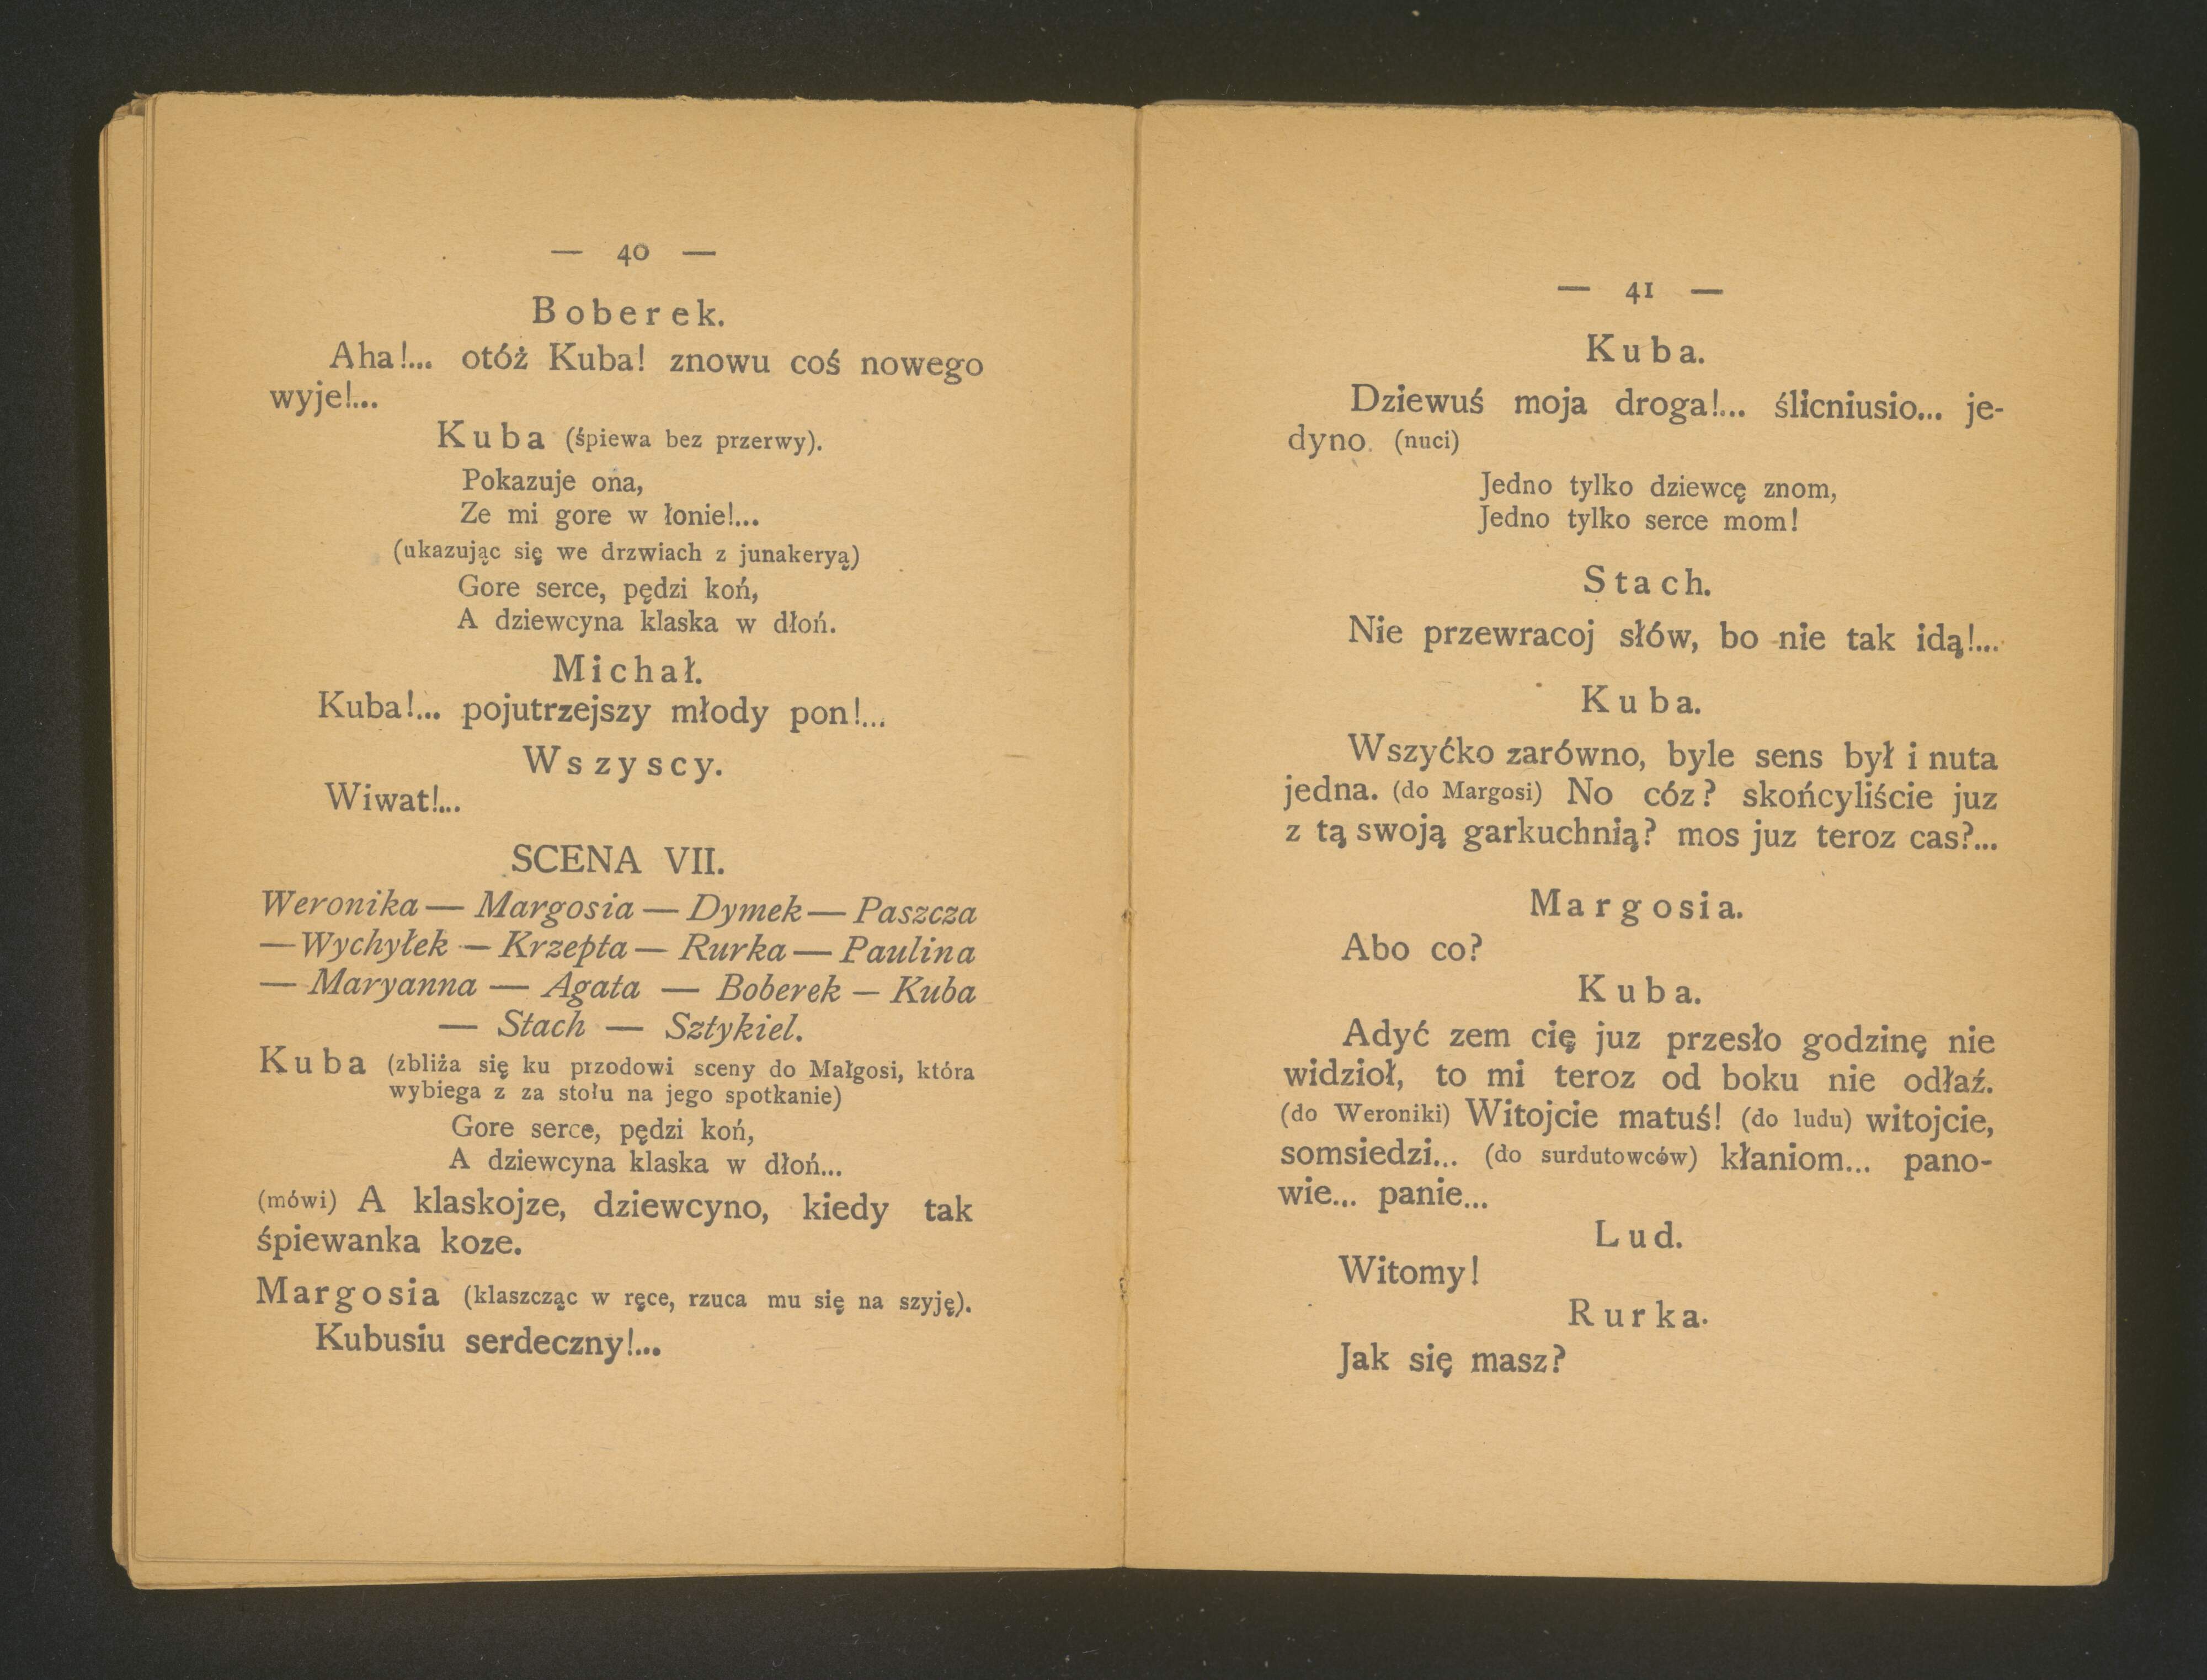 — 40 —
Boberek.
Aha!... otóż Kuba! znowu coś nowego
wyje!...
Kuba (śpiewa bez przerwy).
Pokazuje ona,
Ze mi gore w łonie!...
(ukazując się we drzwiach z junakeryą)
Gore serce, pędzi koń,
A dziewcyna klaska w dłoń.
Michał.
Kuba!... pojutrzejszy młody pon!...
Wszyscy.
Wiwat!...
SCENA VII.
Weronika — Margosia — Dymek — Paszcza
— Wychyłek — Krzepta — Rurka — Paulina
— Maryanna — Agata — Boberek — Kuba
— Stach — Sztykiel.
Kuba (zbliża się ku przodowi sceny do Małgosi, która
wybiega z za stołu na jego spotkanie)
Gore serce, pędzi koń,
A dziewcyna klaska w dłoń...
(mówi) A klaskojze, dziewcyno, kiedy tak
śpiewanka koze.
Margosia (klaszcząc w ręce, rzuca mu się na szyję).
Kubusiu serdeczny!...
— 41 —
Kuba.
Dziewuś moja droga!... ślicniusio... je-
dyno. (nuci)
Jedno tylko dziewcę znom,
Jedno tylko serce mom!
Stach.
Nie przewracoj słów, bo nie tak idą!...
Kuba.
Wszyćko zarówno, byle sens był i nuta
jedna. (do Margosi) No cóz? skońcyliście juz
z tą swoją garkuchnią? mos juz teroz cas?...
Margosia.
Abo co?
Kuba.
Adyć zem cię juz przesło godzinę nie
widzioł, to mi teroz od boku nie odłaź.
(do Weroniki) Witojcie matuś! (do ludu) witojcie,
somsiedzi... (do surdutowców) kłaniom... pano-
wie... panie...
Lud.
Witomy!
Rurka.
Jak się masz?